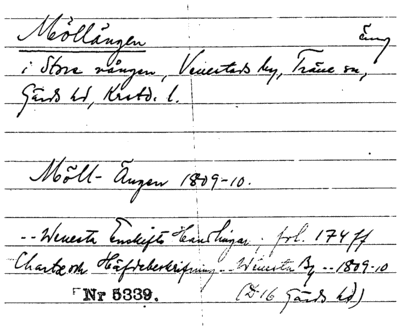 Möllängen Äng
i Stora vången, Venestads by, Träne sn,
Gärds hd, Krstd. l.
Möll-Ängen 1809-10.
--Wenesta Enskifts Handlingar, fol. 174 ff
Charta och Häfdebeskrifning -- Winesta By -- 1809-10
Nr 5339. (D 16 Gärds hd)